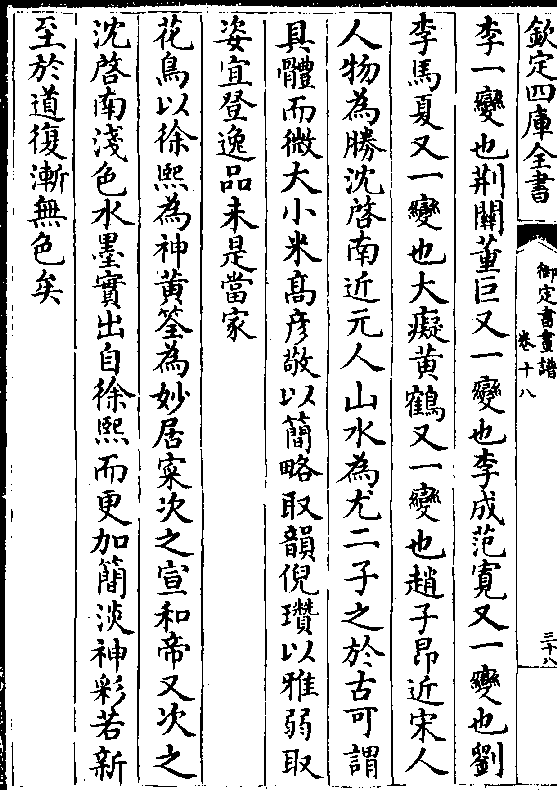 欽定四庫全書
御定書畫譜
卷十八
三十八
李一變也荆關董巨又一變也李成范寬又一變也劉
李馬夏又一變也大癡黄鶴又一變也趙子昂近宋人
人物為勝沈啓南近元人山水為尤二子之於古可謂
具體而微大小米髙彦敬以簡略取韻倪瓚以雅弱取
姿宜登逸品未是當家
花鳥以徐熙為神黄筌為妙居寀次之宣和帝又次之
沈啓南淺色水墨實出自徐熙而更加簡淡神彩若新
至於道復漸無色矣